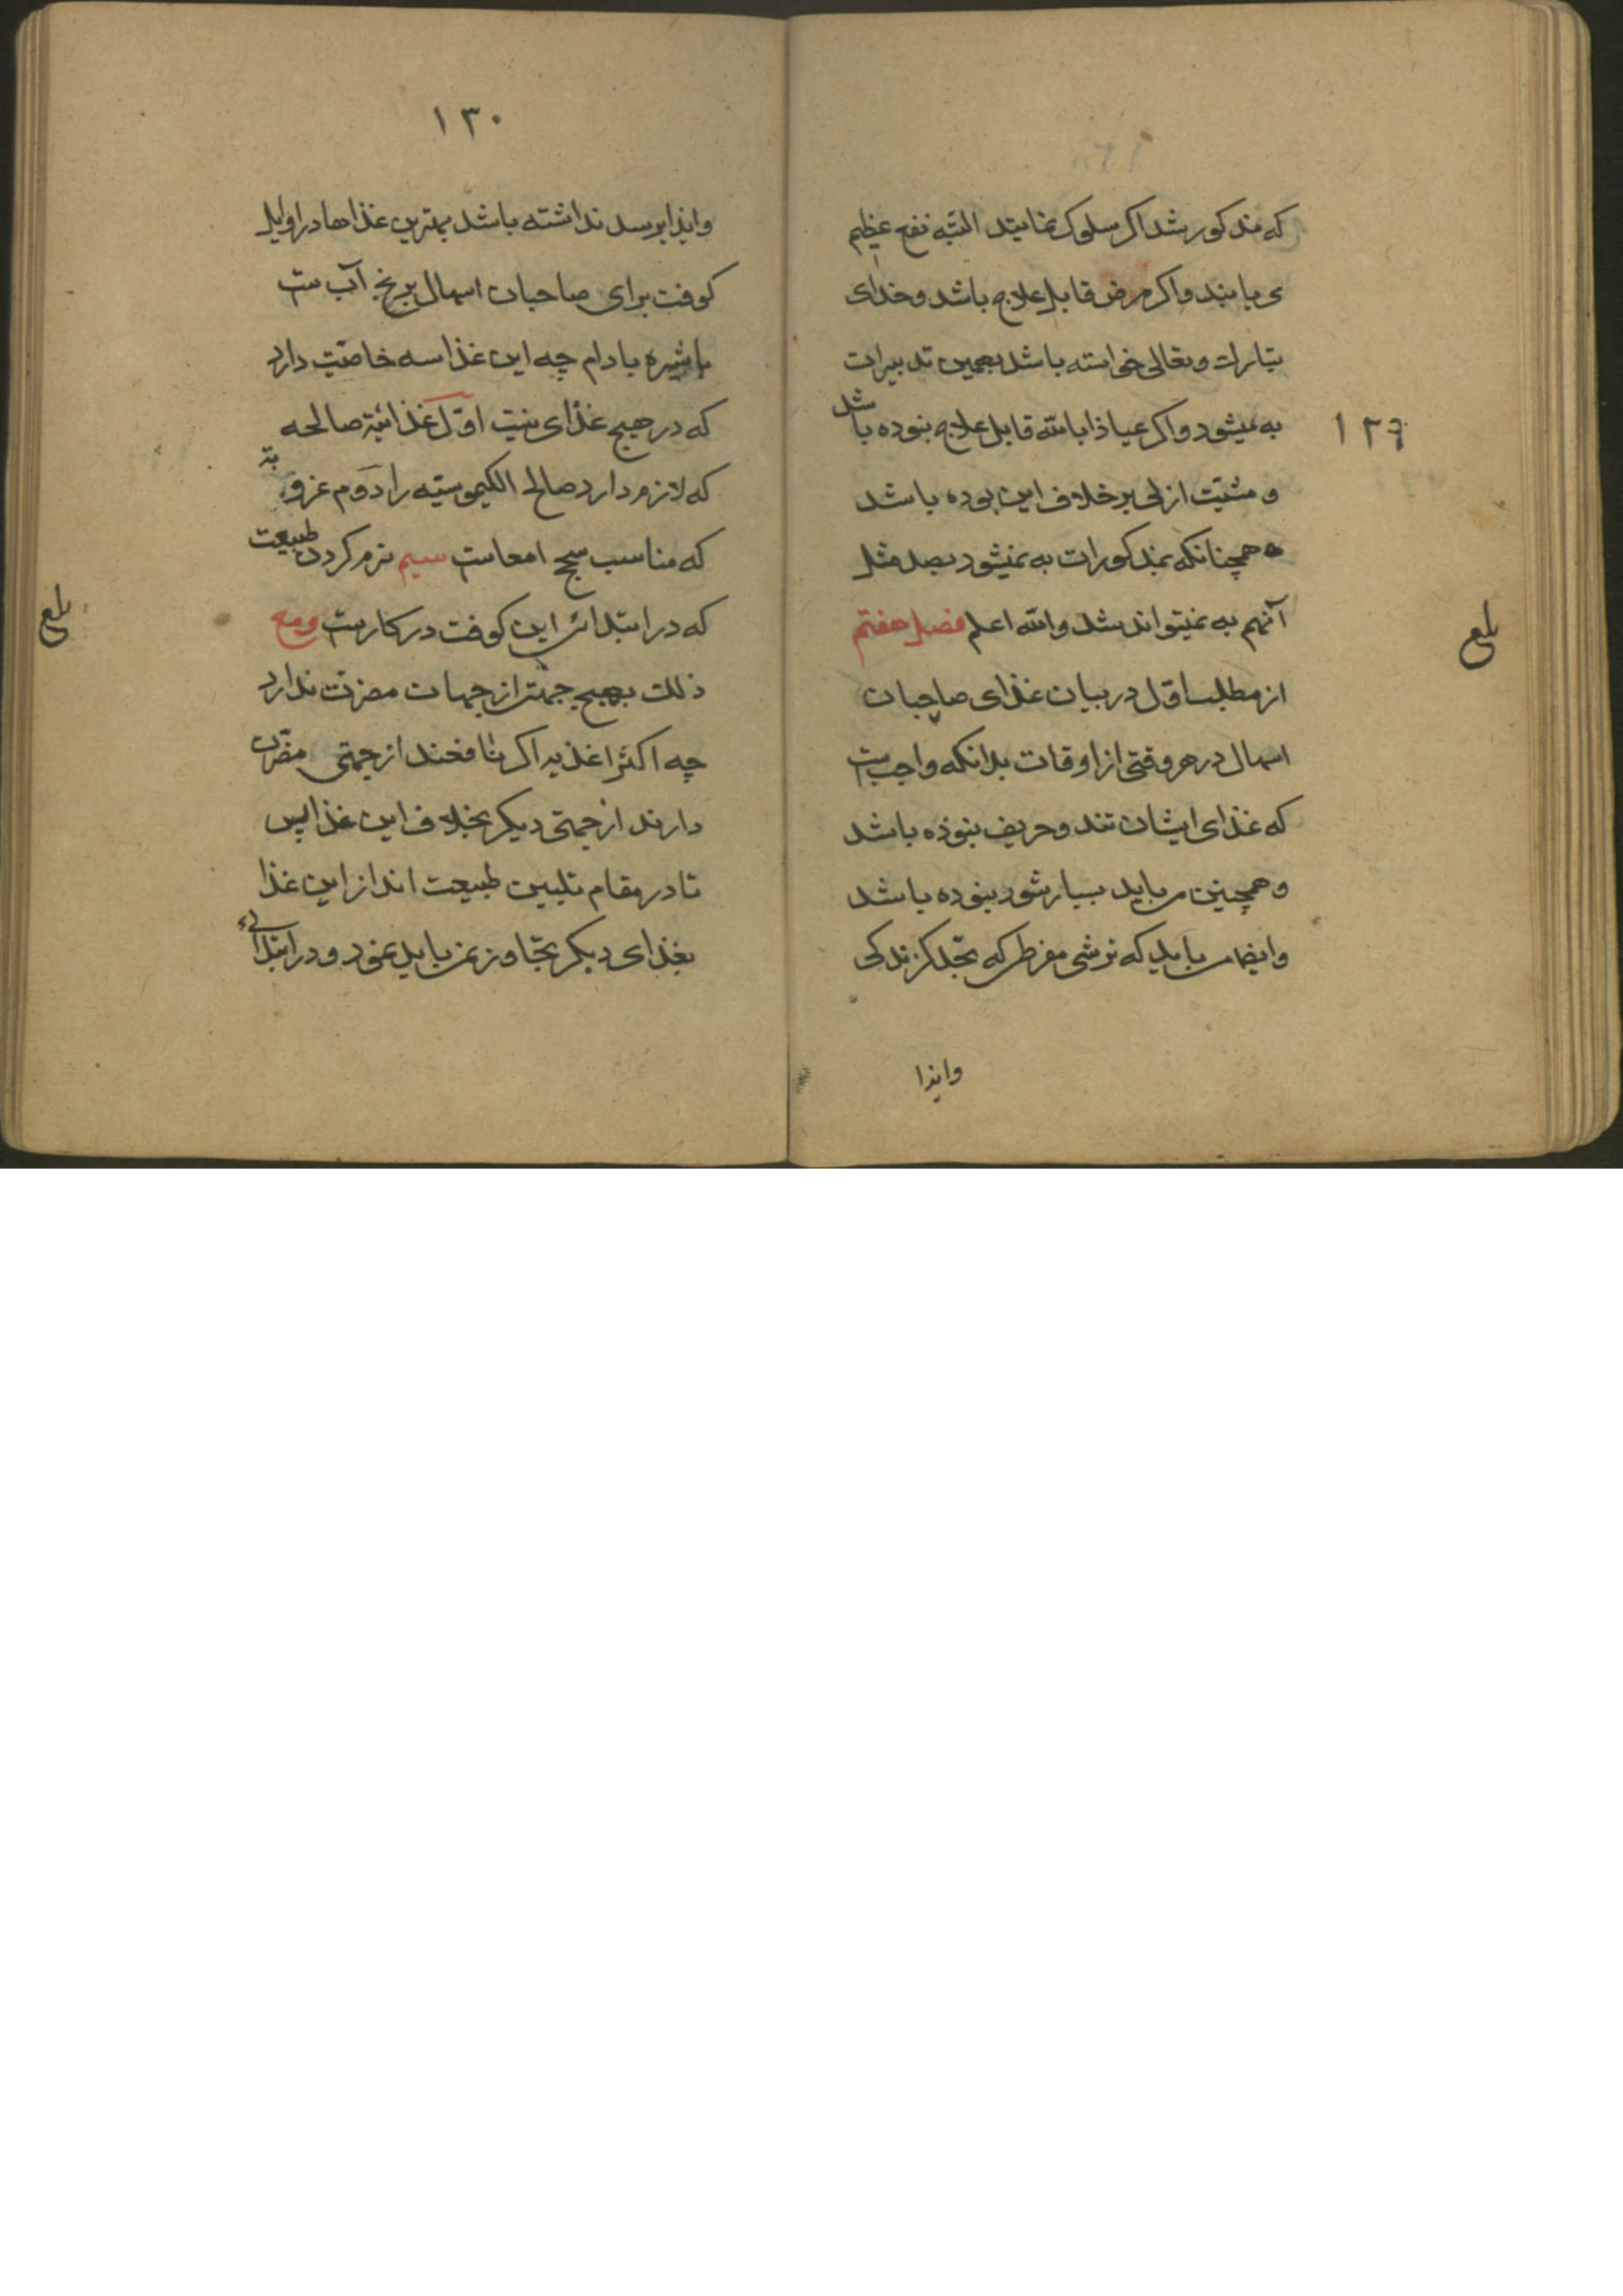 که مذکور شد اکر سلوک نمایند البته نفع عظیم
می یابند و اکر مرض قابل علاج باشد و خدای
تبارک و تعالی خواسته باشد بهمین تدبیرات
به میشود و اکر عیاذا بالله قابل علاج نبوده باشد
۱۲۹
و مشیّت ازلی بر خلاف این بوده باشد
همچنانکه بمذکورات به نمیشود بصد مثل
آنهم به نمیتواند شد والله اعلم فصل هفتم
بلغ
از مطلب اوّل در بیان غذای صاحبان
اسهال در هر وقتی از اوقات بدانکه واجب است
که غذای ایشان تند و حریف نبوده باشد
و همچنین می باید بسیار شور نبوده باشد
و ایضا می باید که ترشی مفرط که بحد کزندکی
وایذا
۱۳۰
وایذا برسد نداشته باشد بهترین غذاها در اوایل
کوفت برای صاحبان اسهال برنج آب ست
باشیره بادام چه این غذا سه خاصّیت دارد
که در هیچ غذای نیست اوّل غذائیّة صالحه
که لازم دارد صالح الکیموسیته را دوم غرویّة
که مناسب سحج امعاست سیم نرم کردن طبیعت
که در ابتدائی این کوفت در کار ست و مع
بلغ
ذلک بهیچ جهتی از جهات مضرّت ندارد
چه اکثر اغذیه اکر نافعند از جهتی مضرّت
دارند از جهتی دیکر بخلاف این غذا پس
تا در مقام تلیین طبیعت اند از این غذا
بغذای دیکر تجاوز نمی باید نمود و در ابتدائی